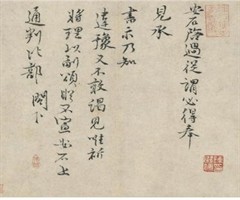 啓過從謂必得奉
見承
書示乃知
違豫又不敢謁見唯祈
將理以副頌詠不宣 上
通判比部 閣下